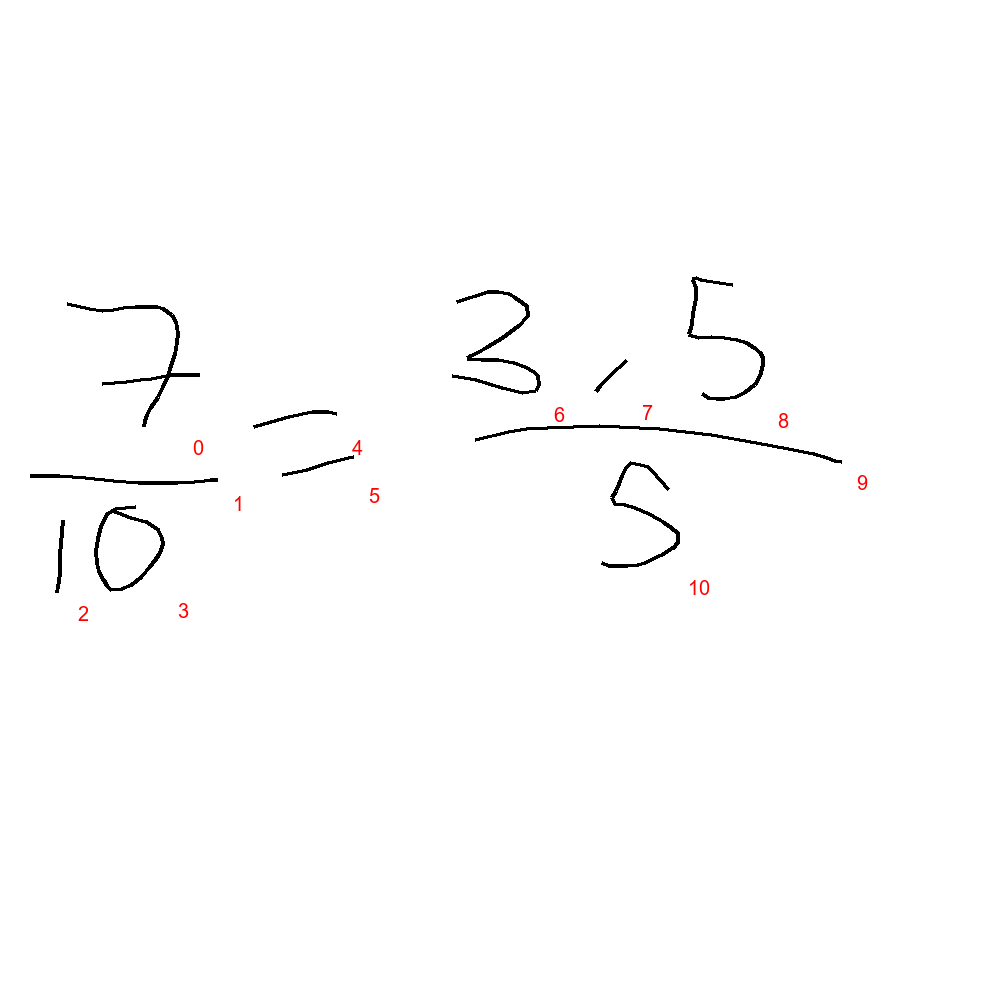 7/10 = 3,5/5
0 1 2 3 4 5 6 7 8 9 10